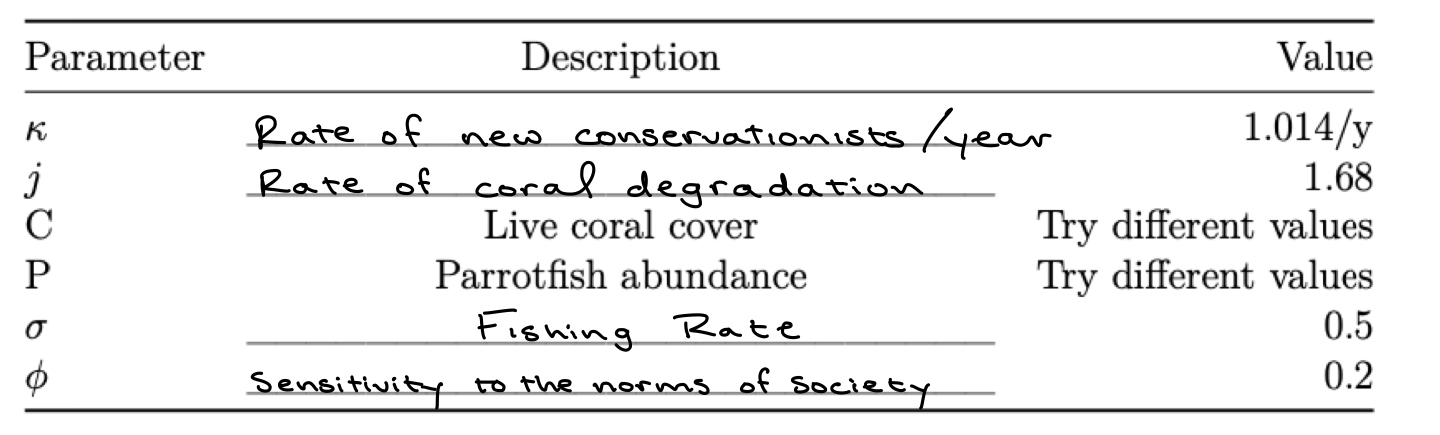 Parameter Description Value
κ Rate of new conservationists/year 1.014/y
j Rate of coral degradation 1.68
C Live coral cover Try different values
P Parrotfish abundance Try different values
σ Fishing Rate 0.5
ϕ Sensitivity to the norms of society 0.2